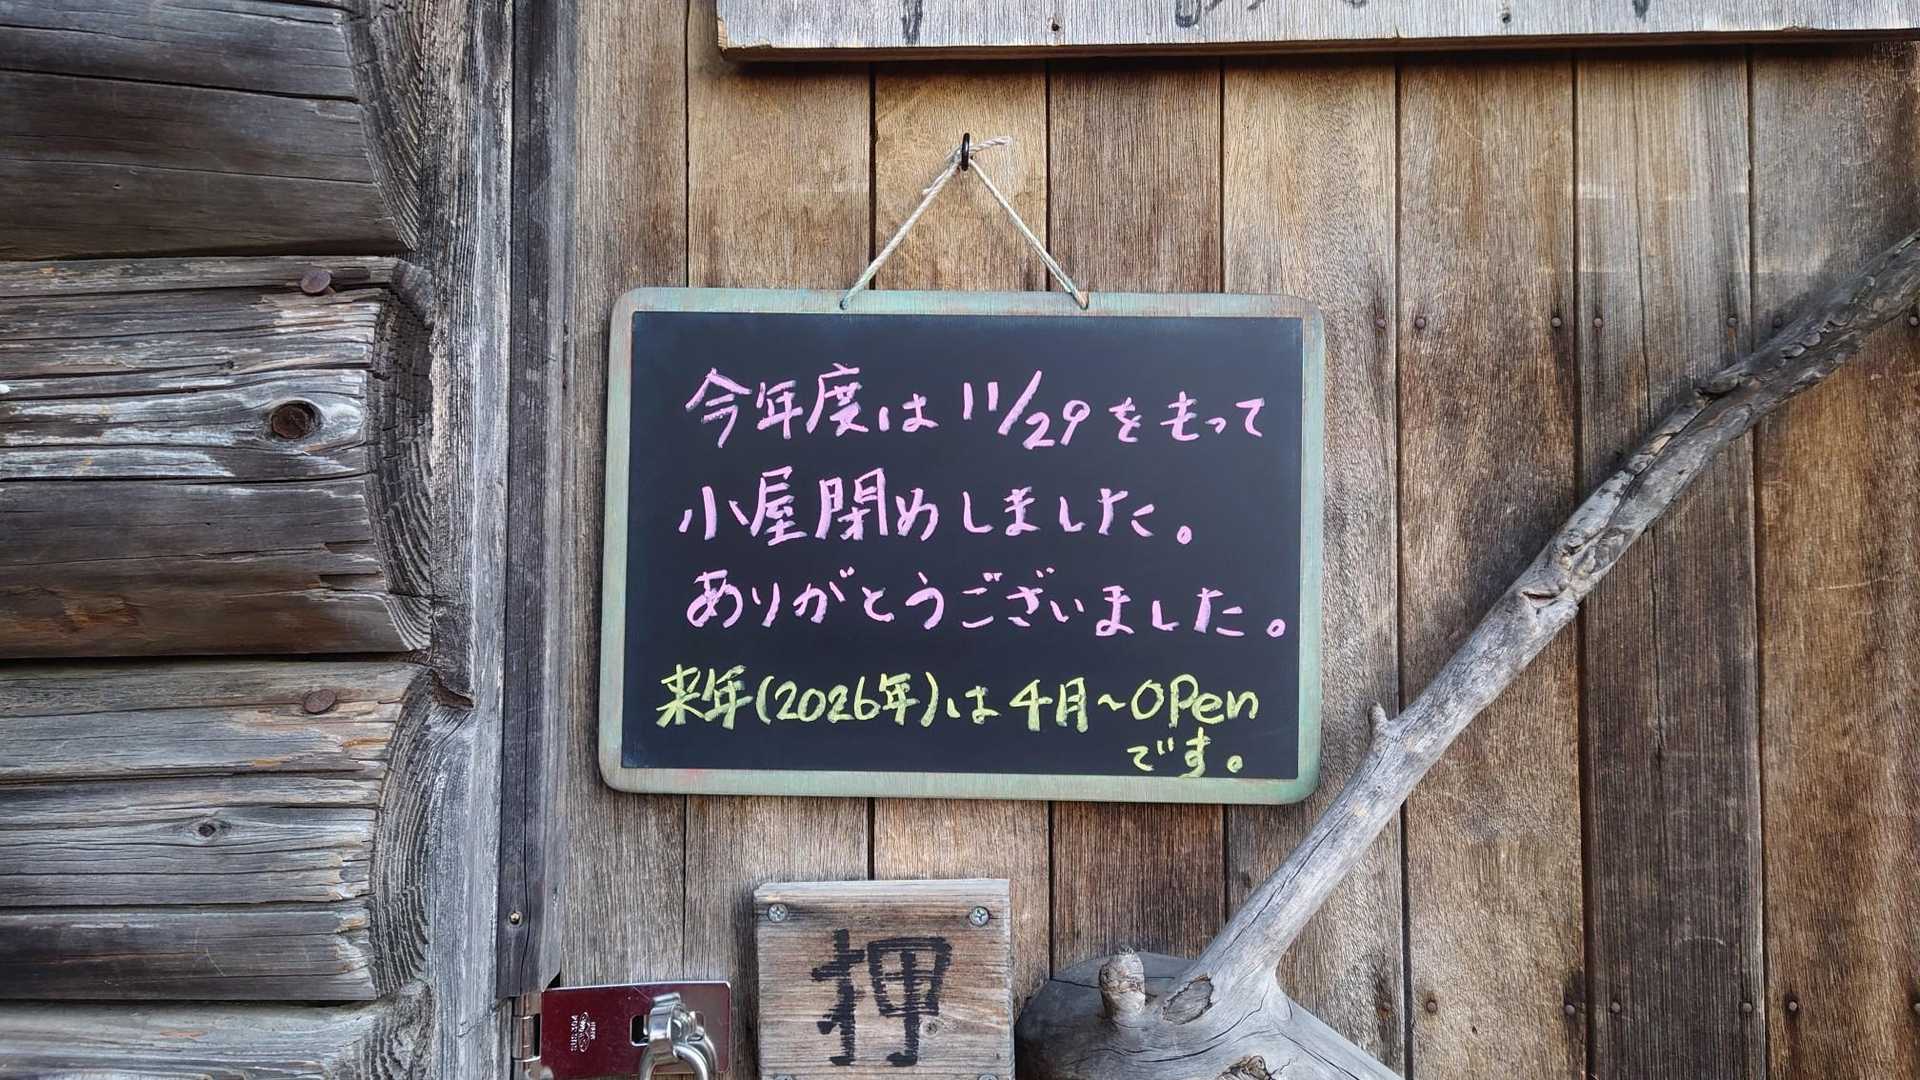 今年度は11/29をもって
小屋閉めしました。
ありがとうございました。
来年(2026年)は4月~OPen
です。
押